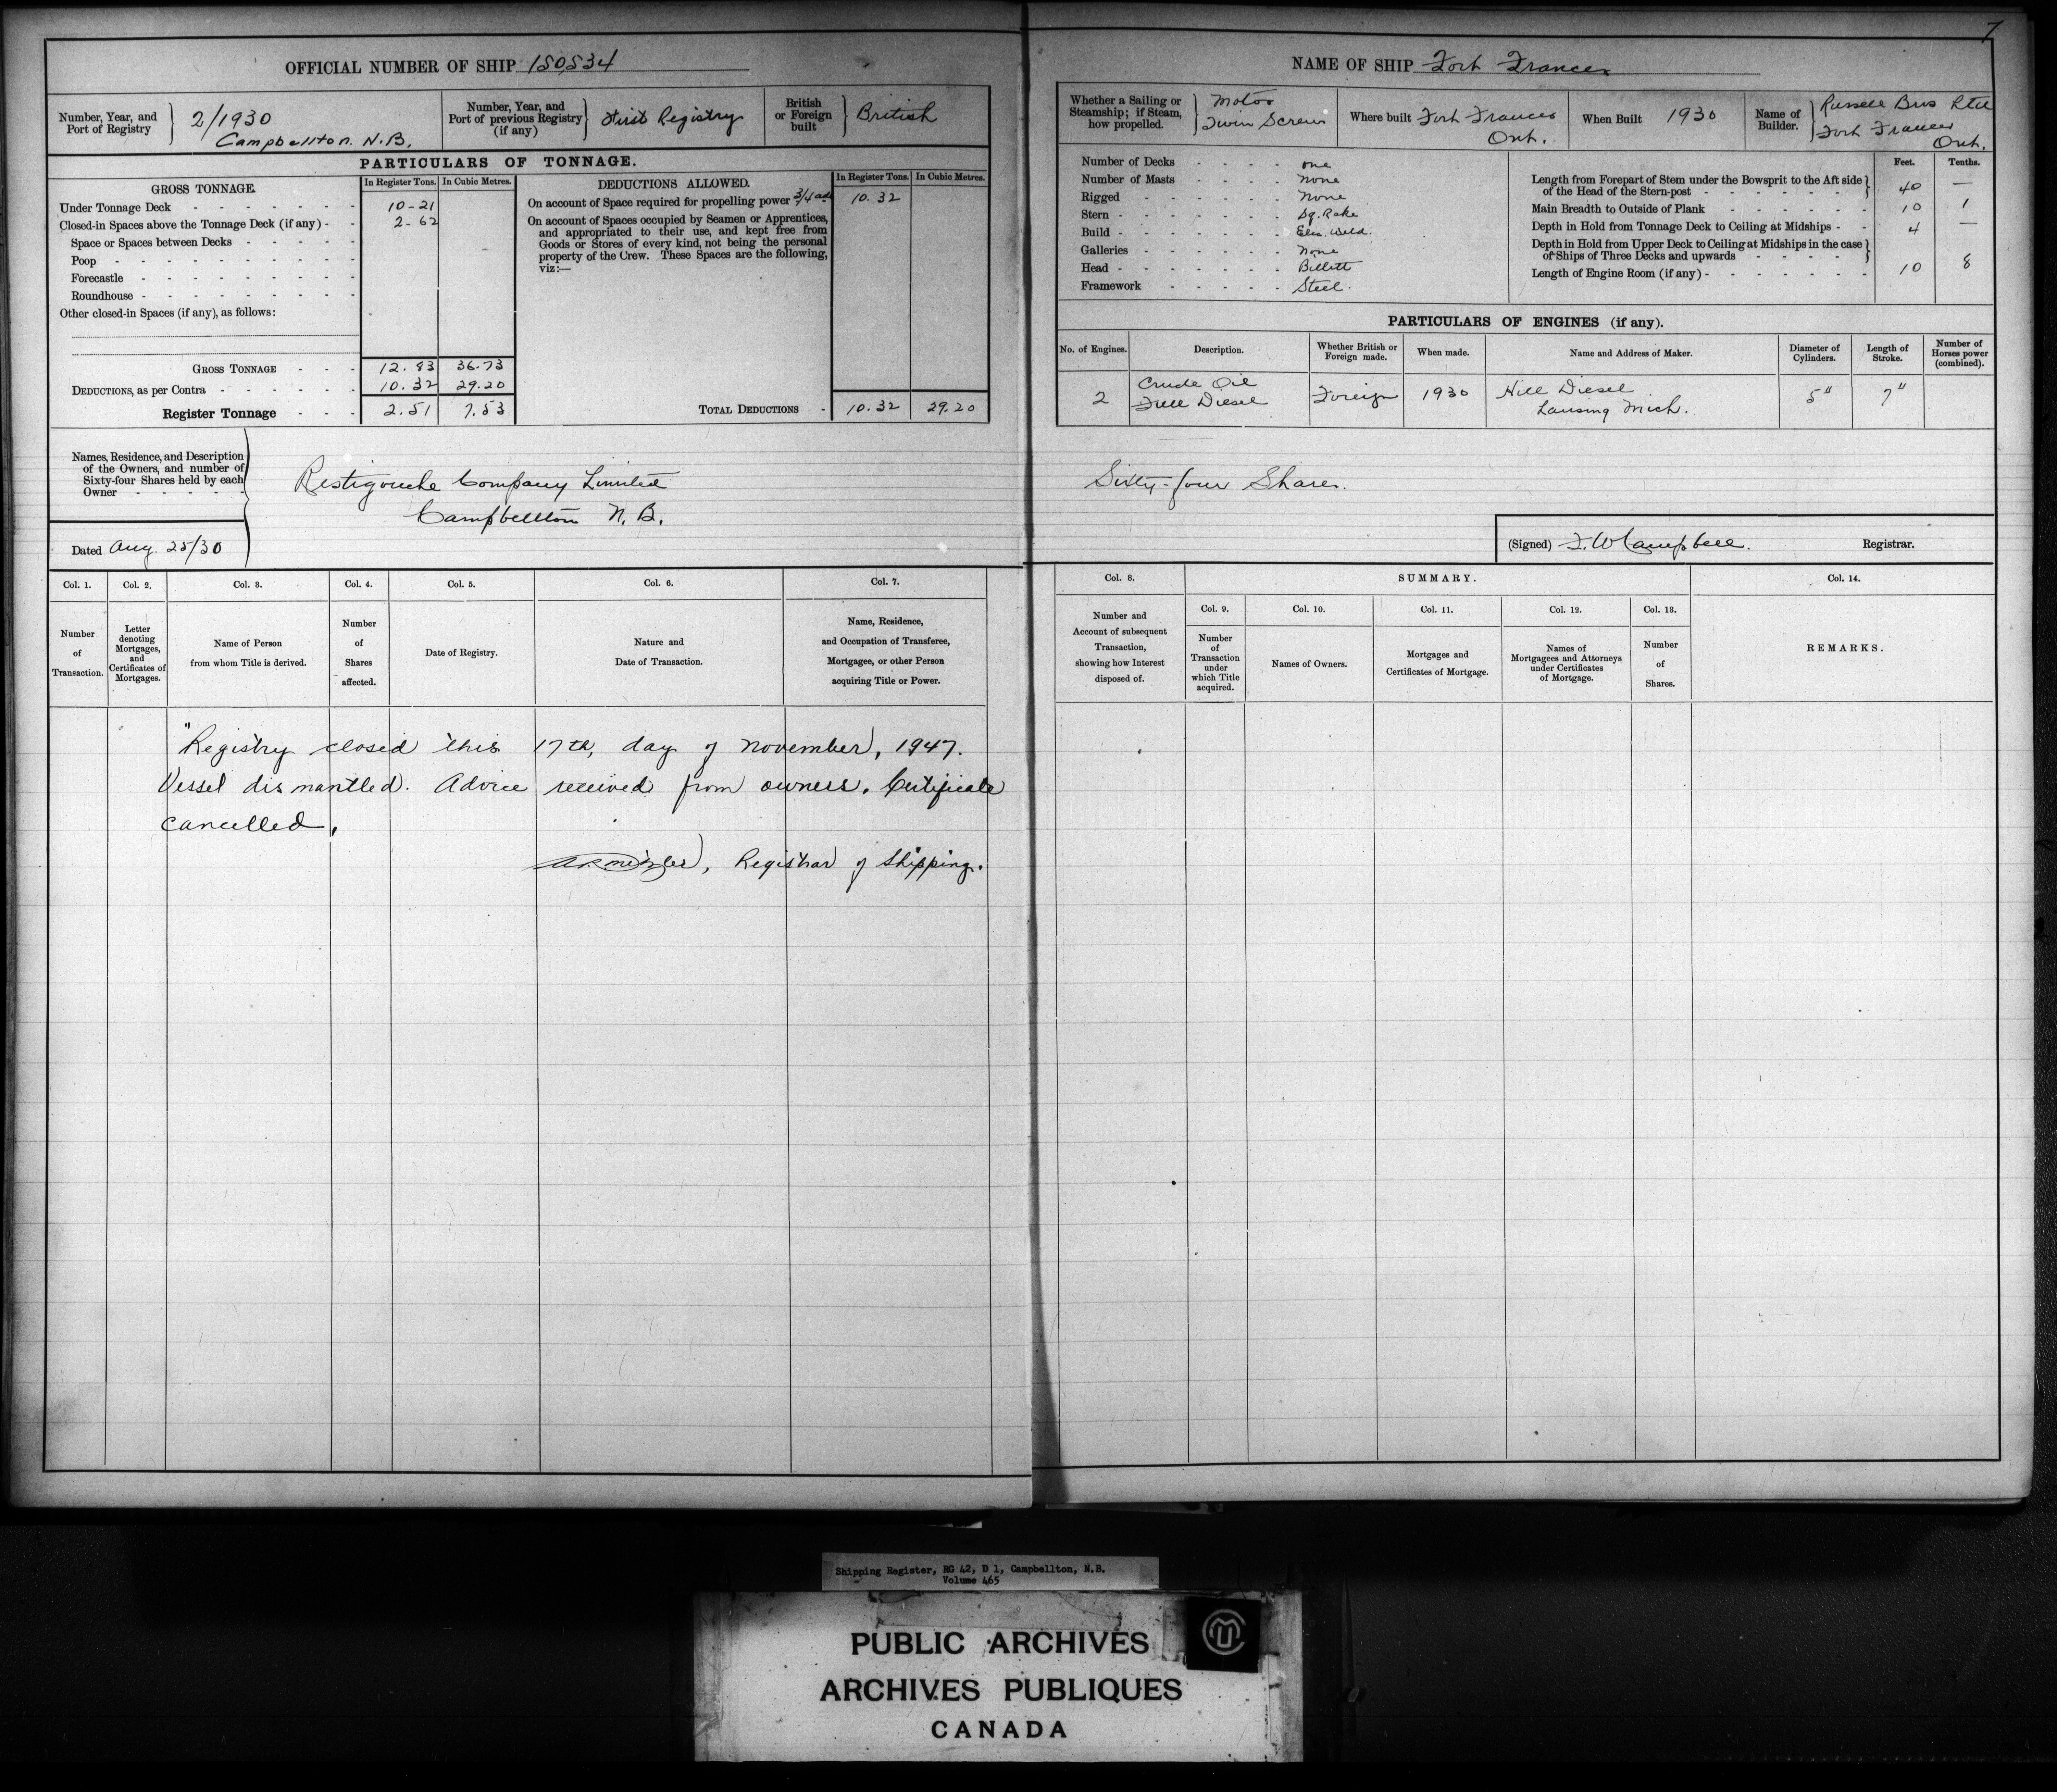 7
OFFICIAL NUMBER OF SHIP 150,534
Number, Year, and Port of Registry } 2/1930 Campbellton. N.B.
Number, Year, and Port of previous Registry (if any) } First Registry
British or Foreign built } British
PARTICULARS OF TONNAGE.
GROSS TONNAGE. In Register Tons. In Cubic Metres.
Under Tonnage Deck 10-21
Closed-in Spaces above the Tonnage Deck (if any) 2-62
Space or Spaces between Decks
Poop
Forecastle
Roundhouse
Other closed-in Spaces (if any), as follows:
GROSS TONNAGE 12.83 36.73
DEDUCTIONS, as per Contra 10.32 29.20
Register Tonnage 2.51 7.53
DEDUCTIONS ALLOWED. In Register Tons. In Cubic Metres.
On account of Space required for propelling power 3/4 10.32
On account of Spaces occupied by Seamen or Apprentices,
and appropriated to their use, and kept free from
Goods or Stores of every kind, not being the personal
property of the Crew. These Spaces are the following,
viz:—
TOTAL DEDUCTIONS 10.32 29.20
Names, Residence, and Description
of the Owners, and number of
Sixty-four Shares held by each
Owner
Restigouche Company Limited
Campbellton N.B.
Dated Aug. 25/30
Col. 1. Number of Transaction.
Col. 2. Letter denoting Mortgages, and Certificates of Mortgages.
Col. 3. Name of Person from whom Title is derived.
Col. 4. Number of Shares affected.
Col. 5. Date of Registry.
Col. 6. Nature and Date of Transaction.
Col. 7. Name, Residence, and Occupation of Transferee, Mortgagee, or other Person acquiring Title or Power.
"Registry closed this 17th, day of November, 1947.
Vessel dismantled. Advice received from owners. Certificate
cancelled.
Registrar of Shipping.
NAME OF SHIP Fort Frances
Whether a Sailing or Steamship; if Steam, how propelled. } Motor Twin Screw
Where built Fort Frances Ont.
When Built 1930
Name of Builder. } Russell Bros Ltd Fort Frances Ont.
Number of Decks one
Number of Masts None
Rigged None
Stern Sq. Rake
Build Elec. Weld.
Galleries None
Head Billett
Framework Steel.
Feet. Tenths.
Length from Forepart of Stem under the Bowsprit to the Aft side of the Head of the Stern-post 40 —
Main Breadth to Outside of Plank 10 1
Depth in Hold from Tonnage Deck to Ceiling at Midships 4 —
Depth in Hold from Upper Deck to Ceiling at Midships in the case of Ships of Three Decks and upwards
Length of Engine Room (if any) 10 8
PARTICULARS OF ENGINES (if any).
No. of Engines. Description. Whether British or Foreign made. When made. Name and Address of Maker. Diameter of Cylinders. Length of Stroke. Number of Horses power (combined).
2 Crude Oil Full Diesel Foreign 1930 Hill Diesel Lansing Mich. 5" 7"
Sixty-four Shares.
(Signed) F. W. Campbell. Registrar.
Col. 8. Number and Account of subsequent Transaction, showing how Interest disposed of.
SUMMARY.
Col. 9. Number of Transaction under which Title acquired.
Col. 10. Names of Owners.
Col. 11. Mortgages and Certificates of Mortgage.
Col. 12. Names of Mortgagees and Attorneys under Certificates of Mortgage.
Col. 13. Number of Shares.
Col. 14. REMARKS.
Shipping Register, RG 42, D 1, Campbellton, N.B.
Volume 465
PUBLIC ARCHIVES
ARCHIVES PUBLIQUES
CANADA